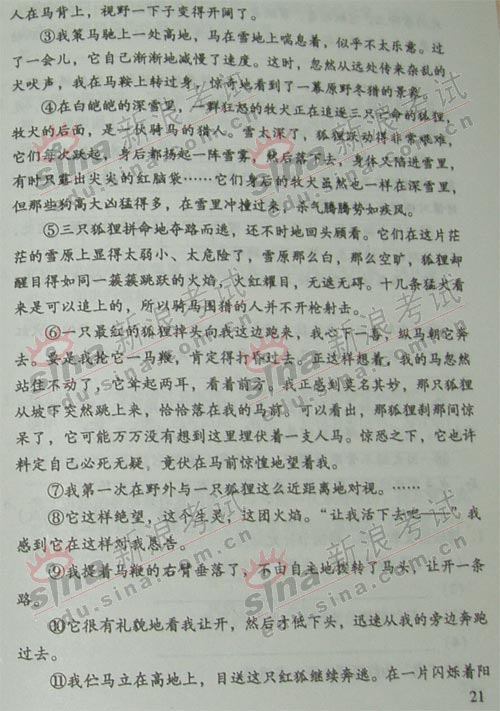 人在马背上，视野一下子变得开阔了。
③我策马驰上一处高地，马在雪地上喘息着，似乎不太乐意。过
了一会儿，它自己渐渐地减慢了速度。这时，忽然从远处传来杂乱的
犬吠声，我在马鞍上转过身，惊奇地看到了一幕原野冬猎的景象。
④在白皑皑的深雪里，一群狂怒的牧犬正在追逐三只亡命的狐狸，
牧犬的后面，是一伙骑马的猎人。雪太深了，狐狸跃动得非常艰难，
它们每次跃起，身后都扬起一阵雪雾，然后落下去，身体又陷进雪里，
有时只露出尖尖的红脑袋……它们身后的牧犬虽然也一样在深雪里，
但那些狗高大凶猛得多，在雪里冲撞过来，杀气腾腾势如疾风。
⑤三只狐狸拼命地夺路而逃，还不时地回头顾看。它们在这片茫
茫的雪原上显得太弱小、太危险了，雪原那么白，那么空旷，狐狸却
醒目得如同一簇簇跳跃的火焰，火红耀目，无遮无碍。十几条猛犬看
来是可以追上的，所以骑马围猎的人并不开枪射击。
⑥一只最红的狐狸掉头向我这边跑来，我心下一喜，纵马朝它奔
去。要是我抡它一马鞭，肯定得打昏过去。正这样想着，我的马忽然
站住不动了，它耸起两耳，看着前方。我正感到莫名其妙，那只狐狸
从坡下突然跳上来，恰恰落在我的马前。可以看出，那狐狸刹那间惊
呆了，它可能万万没有想到这里埋伏着一支人马。惊恐之下，它也许
料定自己必死无疑，竟伏在马前惊惶地望着我。
⑦我第一次在野外与一只狐狸这么近距离地对视。……
⑧它这样绝望，这个生灵，这团火焰。“让我活下去吧——”我
感到它在这样对我恳告。
⑨我提着马鞭的右臂垂落了，不由自主地拨转了马头，让开一条
路。
⑩它很有礼貌地看我让开，然后才低下头，迅速从我的旁边奔跑
过去。
⑪我伫马立在高地上，目送这只红狐继续奔逃。在一片闪烁着阳
21
sina 新浪考试
edu.sina.com.cn